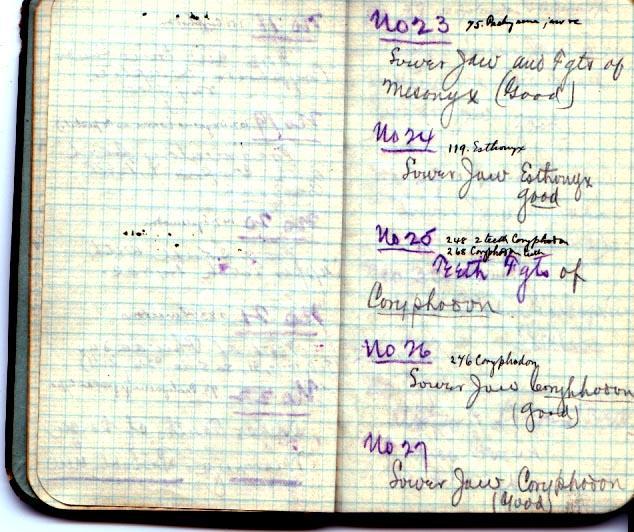 No 23 75. Pachyaena jaw
Lower Jaw and Fgts of
Mesonyx (Good)
No 24 119. Esthonyx
Lower Jaw Esthonyx
good
No 25 248 2 teeth Coryphodon
268 Coryphodon teeth
Teeth Fgts of
Coryphodon
No 26 276 Coryphodon
Lower Jaw Coryphodon
(Good)
No 27
Lower Jaw Coryphodon
(Good)